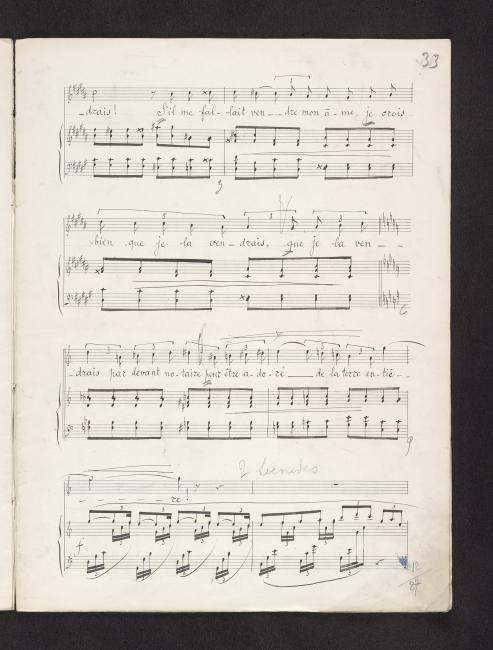 33
_drais! S'il me fal-lait ven_dre mon â-me, je crois
bien que je la ven-drais, que je la ven-_
_drais par devant no-taire pour être a-do-ré___de la terre en-tiè-_
2 secondes
_ _ _ re!
12